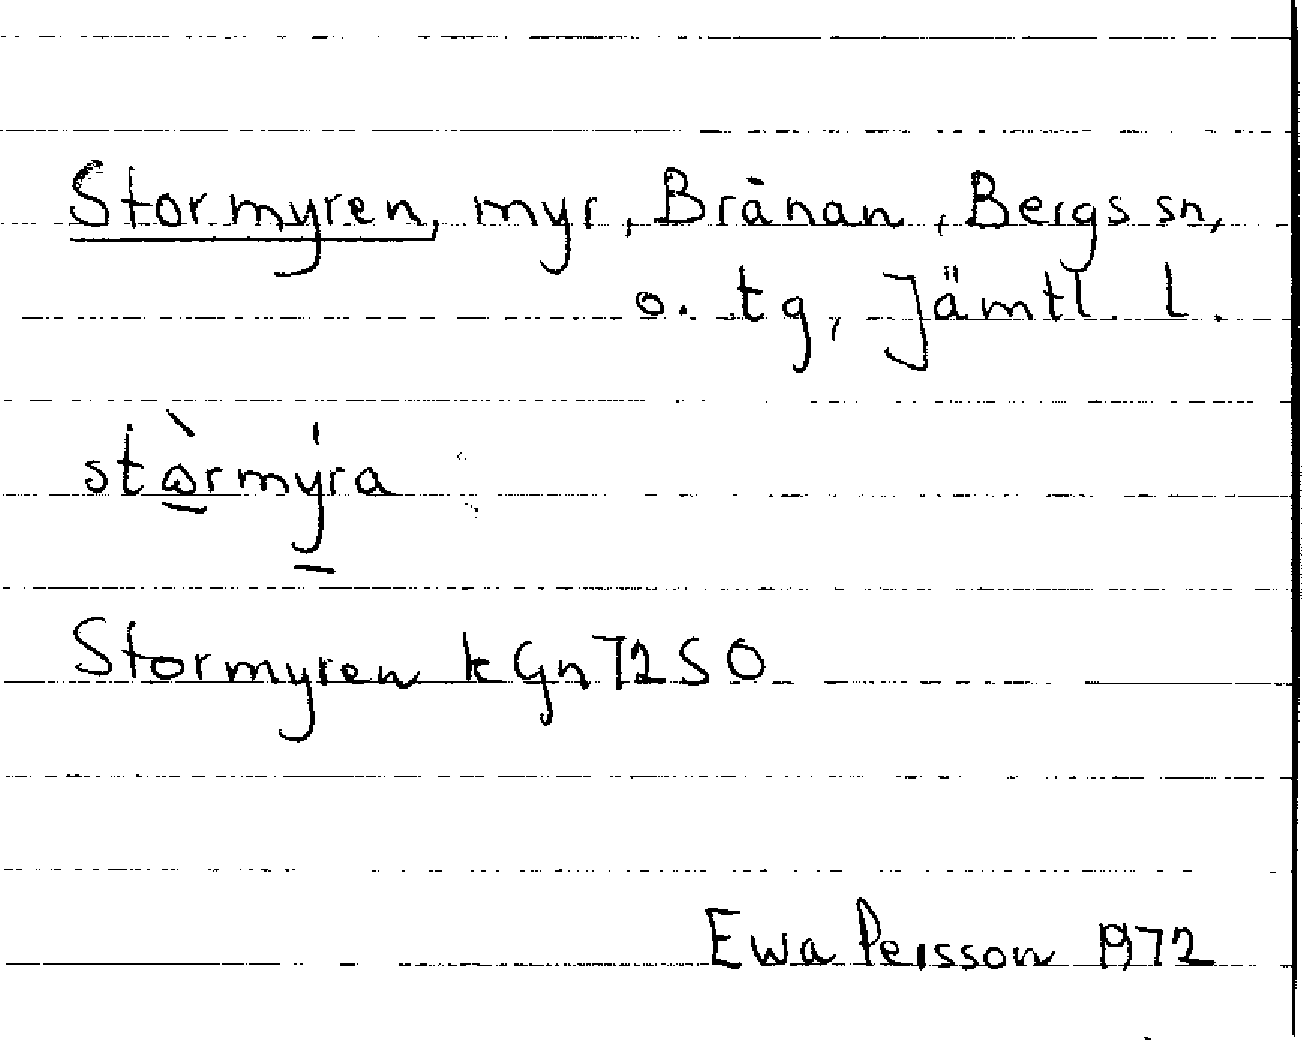 Stormyren, myr, Brånan, Bergs sn,
o. tg, Jämtl. l.
stòrmýra
Stormyren k Gn 72 SO
Ewa Persson 1972